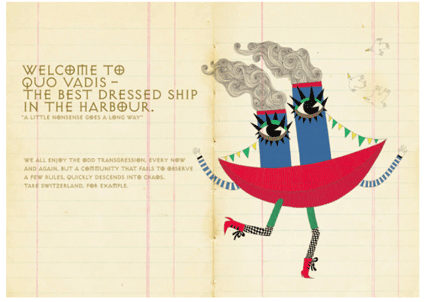 WELCOME TO
QUO VADIS –
THE BEST DRESSED SHIP
IN THE HARBOUR.
"A LITTLE NONSENSE GOES A LONG WAY"
WE ALL ENJOY THE ODD TRANSGRESSION, EVERY NOW
AND AGAIN, BUT A COMMUNITY THAT FAILS TO OBSERVE
A FEW RULES, QUICKLY DESCENDS INTO CHAOS.
TAKE SWITZERLAND, FOR EXAMPLE.